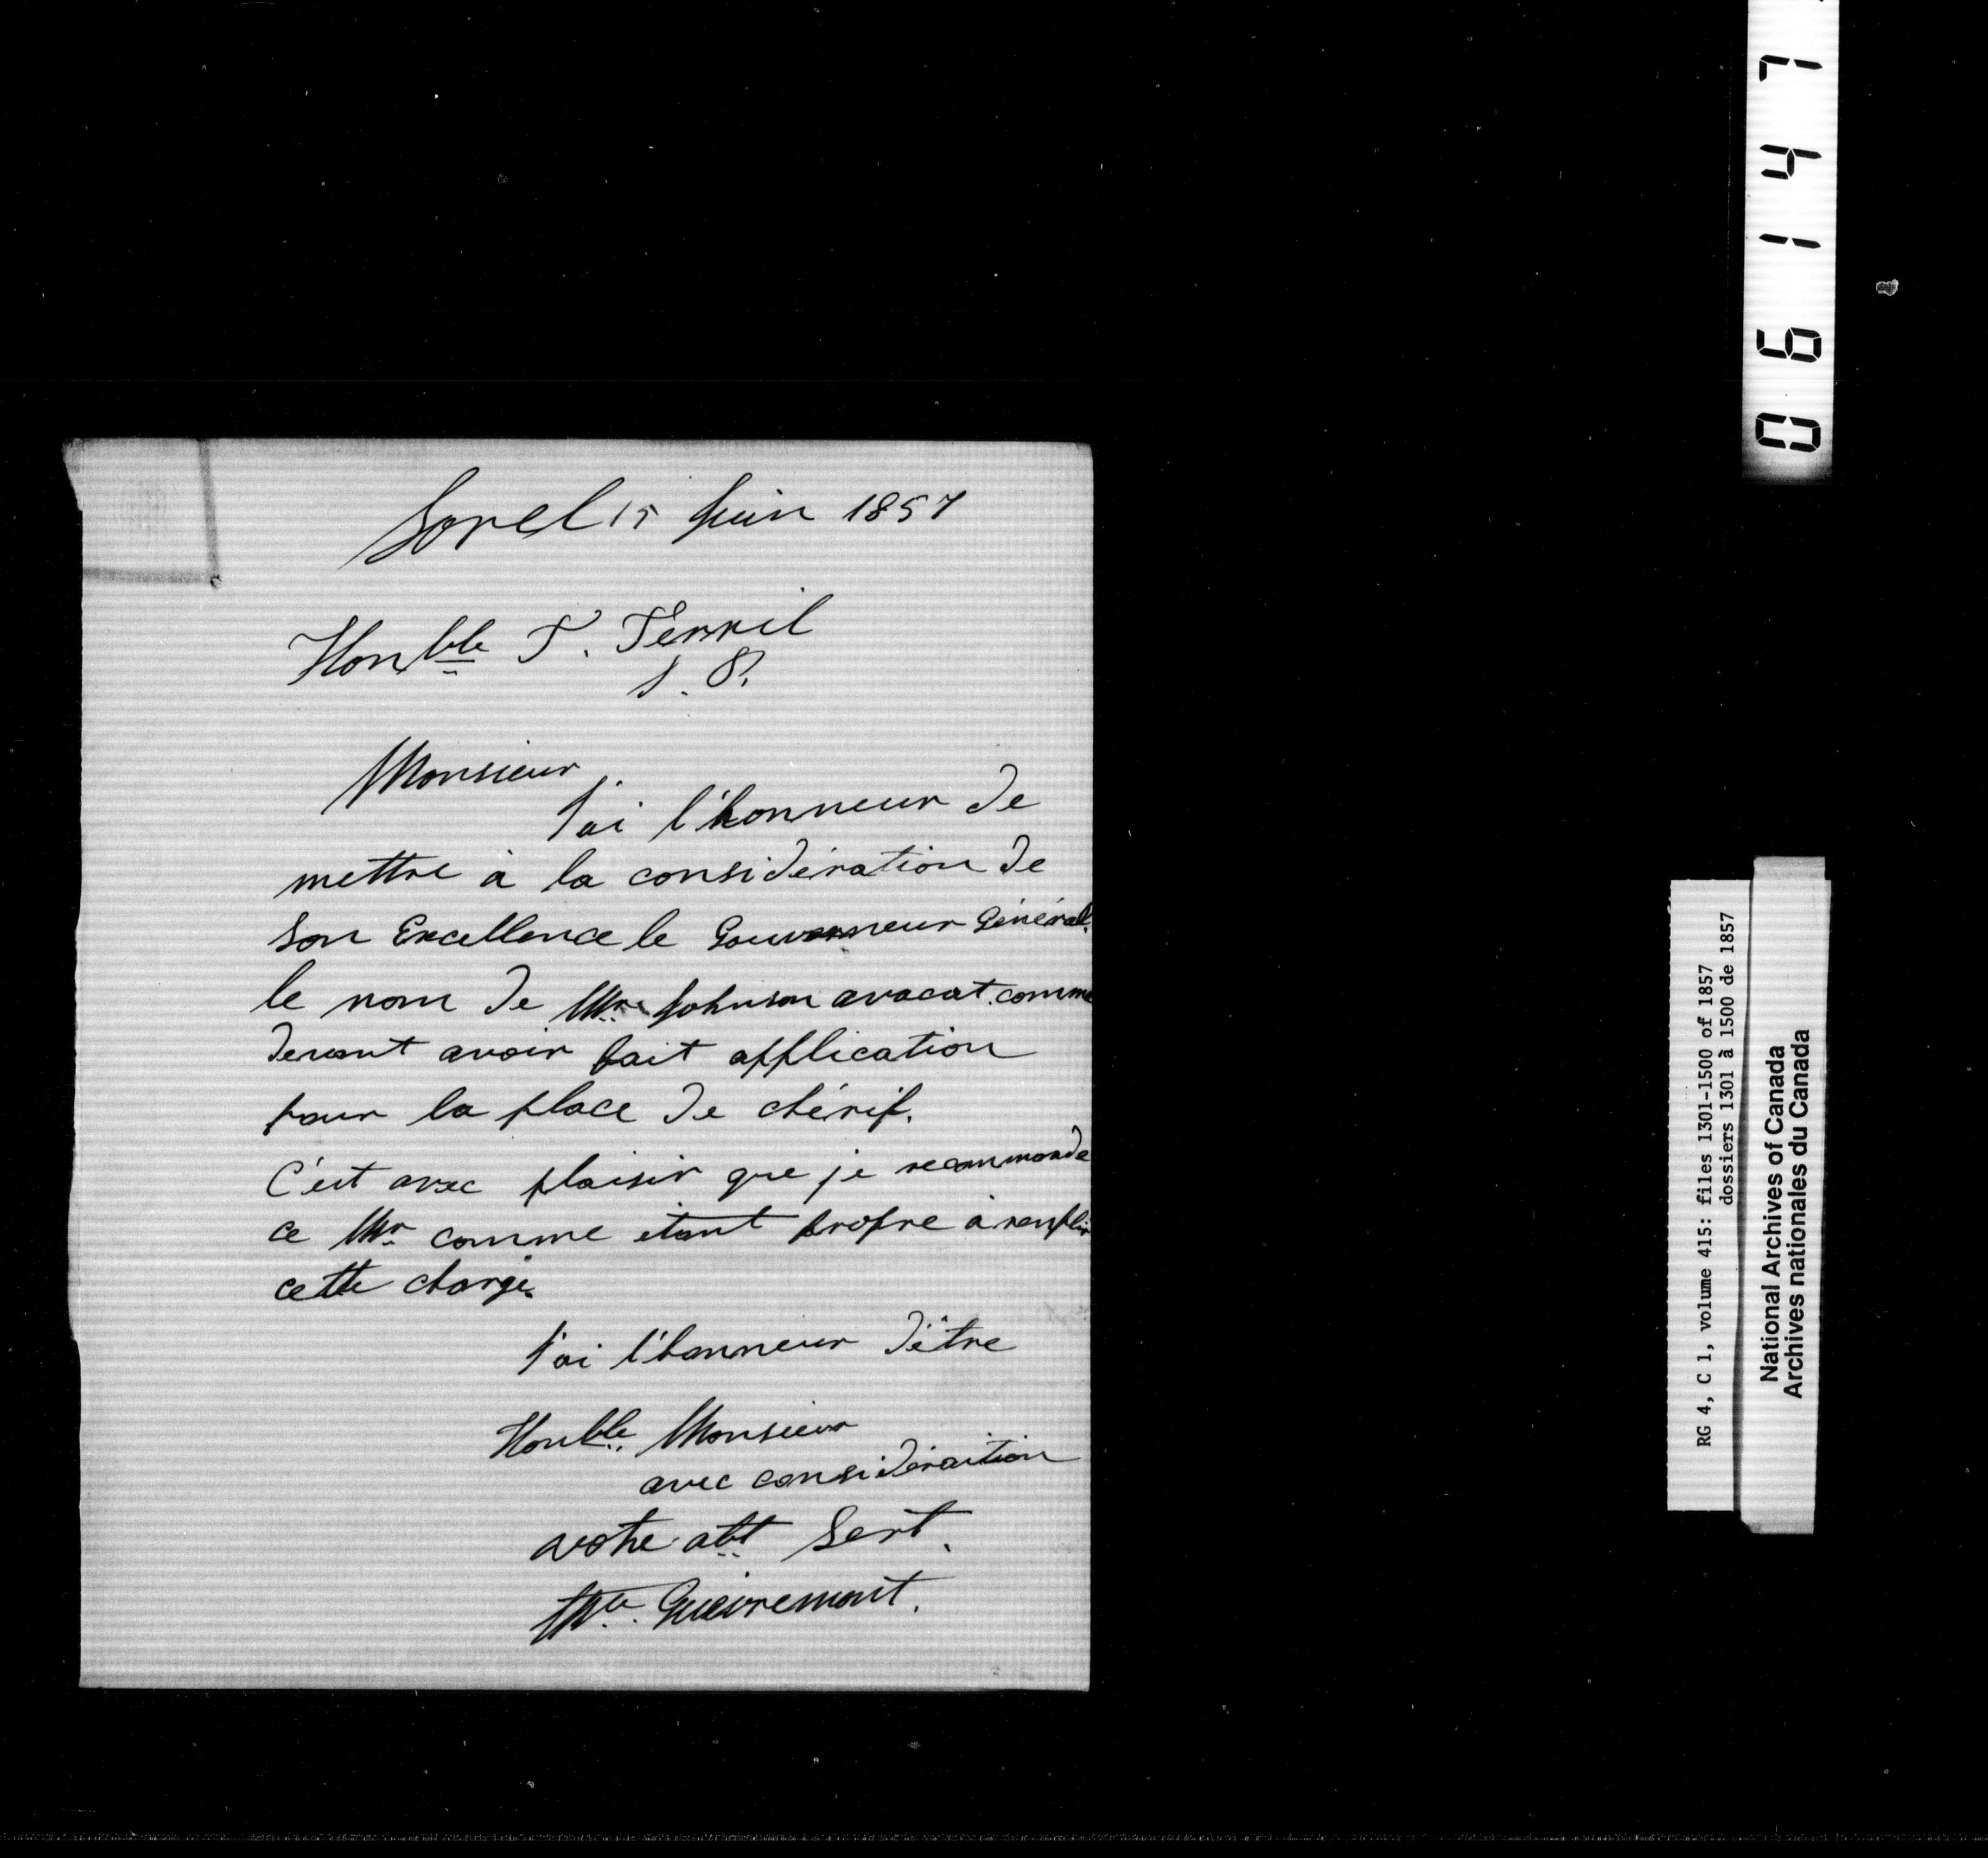 Sorel 15 Juin 1857
Honble T. Terril
S. P.
Monsieur
J'ai l'honneur de
mettre à la considération de
Son Excellence le Gouverneur Général
le nom de Mr. Johnson avocat comme
devant avoir fait application
pour la place de chérif.
C'est avec plaisir que je recommande
ce Mr. comme étant propre à remplir
cette charge.
J'ai l'honneur d'être
Honble Monsieur
avec considération
votre obt Sert.
Guèvremont.
0 6 1 4 7
RG 4, C 1, volume 415: files 1301-1500 of 1857
dossiers 1301 à 1500 de 1857
National Archives of Canada
Archives nationales du Canada